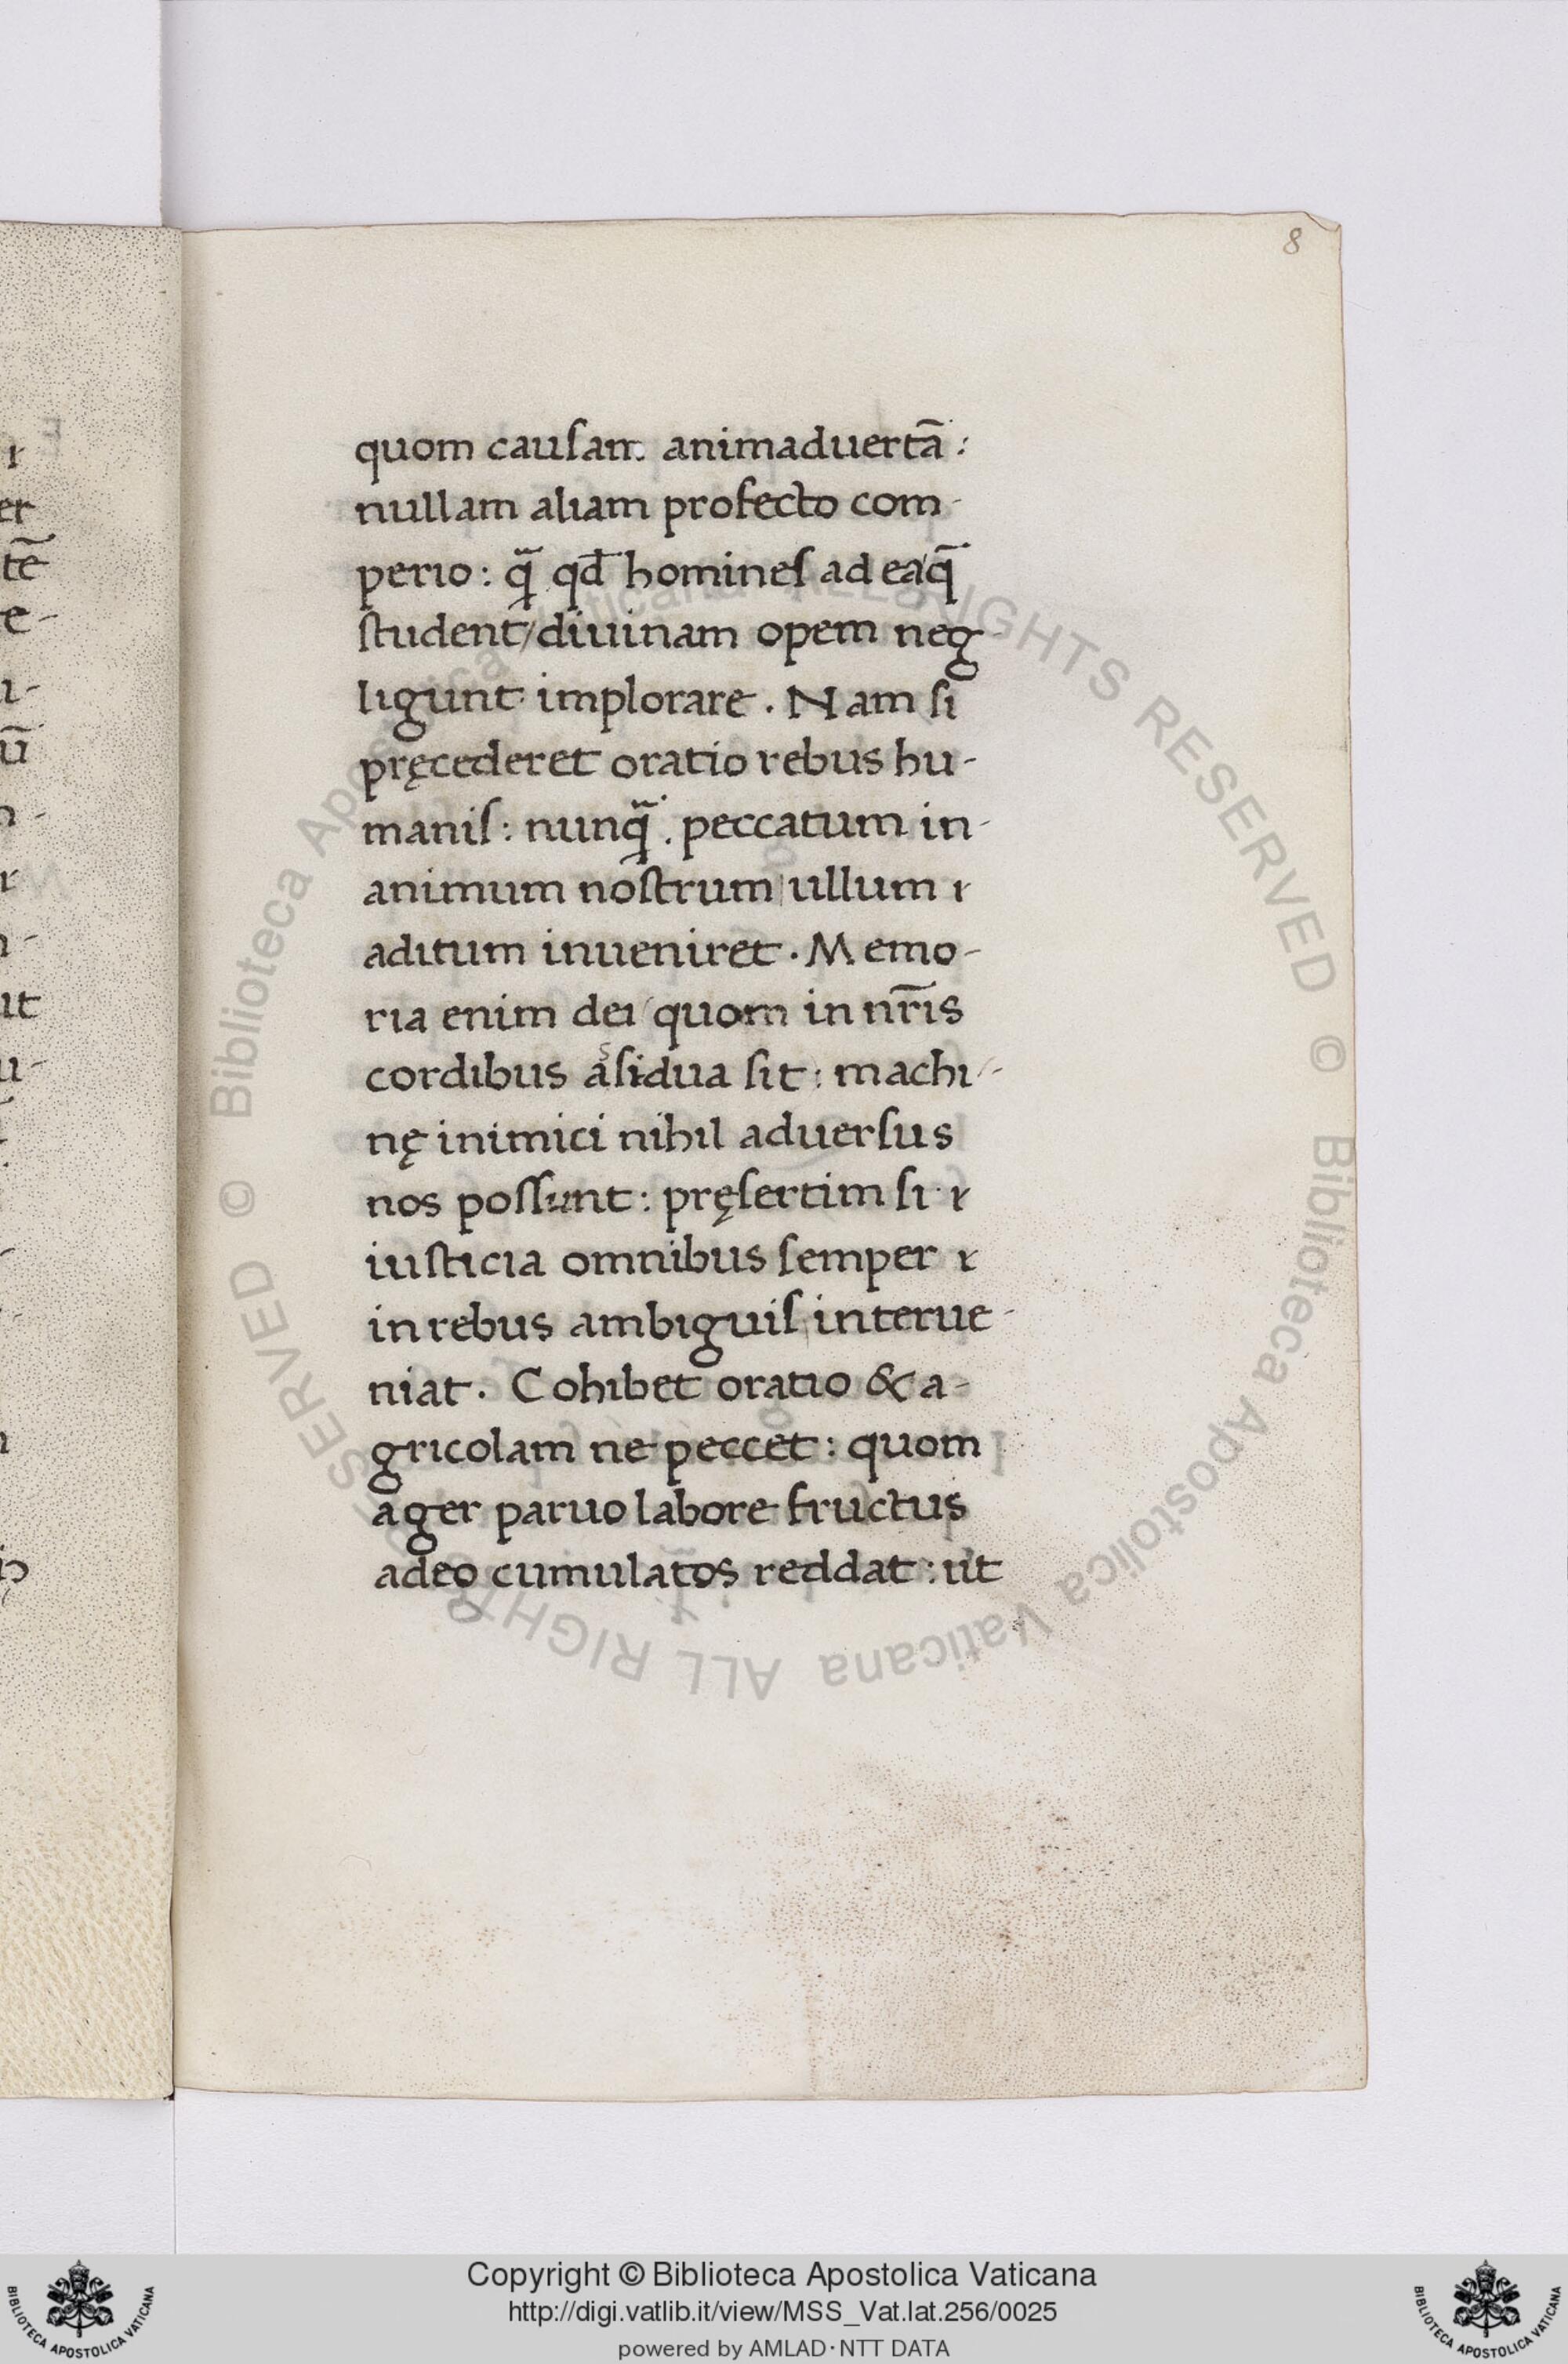 8
quom cauſam animaduertā :
nullam aliam profecto com-
perio : q̄ qd̄ homineſ ad ea q̄
ſtudent/diuinam opem neg-
ligunt implorare . Nam ſi
pręcederet oratio rebus hu-
maniſ : nunq̄ . peccatum in-
animum noſtrum ullum
aditum inueniret . Memo-
ria enim dei quom in nr̄is
cordibus aſsidua ſit : machi-
nę inimici nihil aduerſus
nos poſſunt : pręſertim ſi
iuſticia omnibus ſemper
in rebus ambiguiſ interue-
niat . Cohibet oratio & a-
gricolam ne peccet : quom
ager paruo labore fructus
adeo cumulatos reddat : ut
er
tē
e-
ū
ut
u-
© Biblioteca Apostolica Vaticana ALL RIGHTS RESERVED © Biblioteca Apostolica Vaticana ALL RIGHTS RESERVED
Copyright © Biblioteca Apostolica Vaticana
http://digi.vatlib.it/view/MSS_Vat.lat.256/0025
powered by AMLAD·NTT DATA
BIBLIOTECA APOSTOLICA VATICANA
BIBLIOTECA APOSTOLICA VATICANA